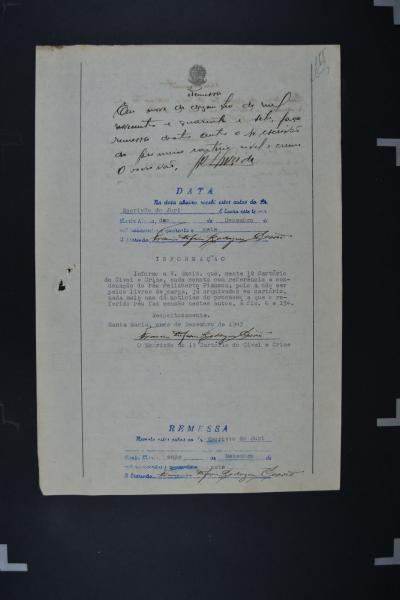 Remessa
Aos nove de dezembro de mil
novecentos e quarenta e sete, faço
remessa destes autos ao Sr. escrivão
do primeiro cartório civel e crime
O escrivão,
DATA
Na data abaixo recebi estes autos do Sr.
Escrivão do Juri
dez de Dezembro de
mil novecentos e quarenta e sete
O Escrivão
INFORMAÇÃO
Informo a V. Excia. que, neste 1º Cartório
do Civel e Crime, nada consta com referência a con-
denação do réu Felisberto
pelos livros de carga, já arquivados em cartório,
nada mais nos dá notícias do processo a que o re-
ferido réu faz menção nestes autos, à fls. 6 e 13v.
Respeitosamente.
Santa Maria, onze de Dezembro de 1947
O Escrivão do 1º Cartório do Civel e Crime
REMESSA
Remeto estes autos ao Sr. Escrivão do Juri
Santa Maria, onze de Dezembro de
mil novecentos e quarenta e sete
O Escrivão